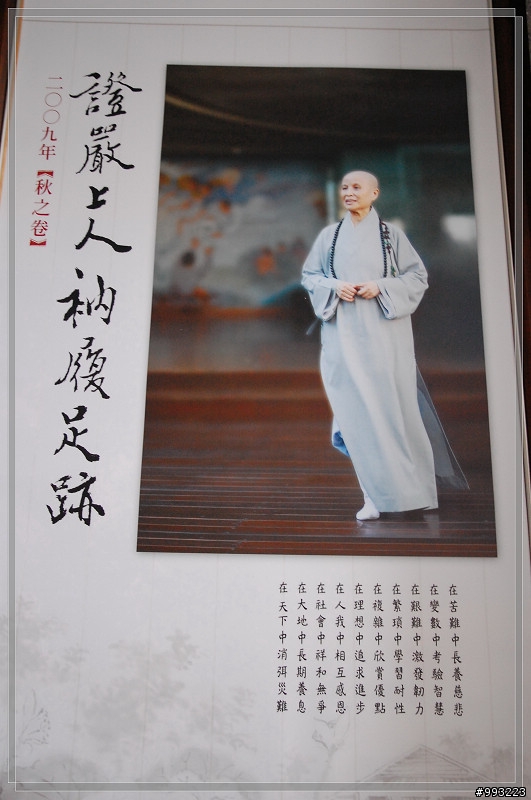 證嚴上人衲履足跡
二〇〇九年【秋之卷】
在苦難中長養慈悲
在變數中考驗智慧
在艱難中激發韌力
在繁瑣中學習耐性
在複雜中欣賞優點
在理想中追求進步
在人我中相互感恩
在社會中祥和無爭
在大地中長期養息
在天下中消弭災難
#993223